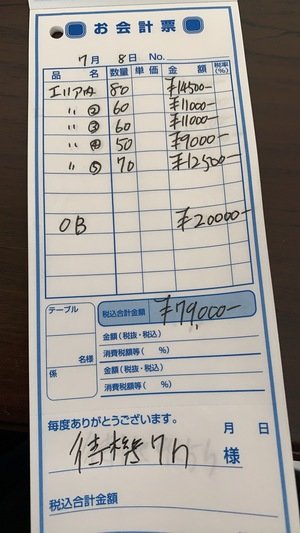 お会計票
7月 8日 No.
品名 数量 単価 金額 税率(%)
エリア内 80 ¥14500-
〃 ② 60 ¥11000-
〃 ③ 60 ¥11000-
〃 ④ 50 ¥9000-
〃 ⑤ 70 ¥12500-
OB ¥20000-
テーブル
税込合計金額 ¥79,000-
金額(税抜・税込)
名様
消費税額等( %)
係
金額(税抜・税込)
消費税額等( %)
毎度ありがとうございます。 月 日
待機7h 様
税込合計金額